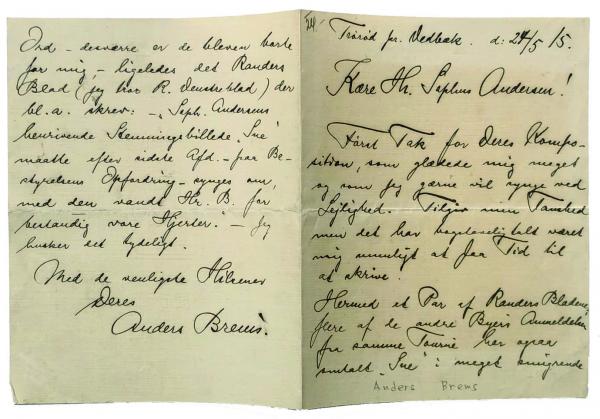 Trørød pr. Vedbæk. d: 24/5 15.
Kære Hr. Sophus Andersen!
Først Tak for Deres Kompo-
sition, som glædede mig meget
og som jeg gærne vil synge ved
Lejlighed. Tilgiv min Taushed
men det har bogstaveligtalt været
mig umuligt at faa Tid til
at skrive.
Hermed et Par af Randers Bladene,
flere af de andre Byers Anmeldelser
fra samme Tourné har ogsaa
omtalt "Sne" i meget smigrende
Anders Brems
Ord - desværre er de bleven borte
for mig, - ligeledes det Randers
Blad (jeg tror R. Venstreblad) der
bl.a. skrev: - "Soph. Andersens
henrivende Stemningsbillede "Sne"
maatte efter sidste Afd. - paa Be-
styrelsens Opfordring - synges om,
med den vandt Hr. B. for
bestandig vore Hjerter." - Jeg
husker det tydeligt.
Med de venligste Hilsener
Deres
Anders Brems.